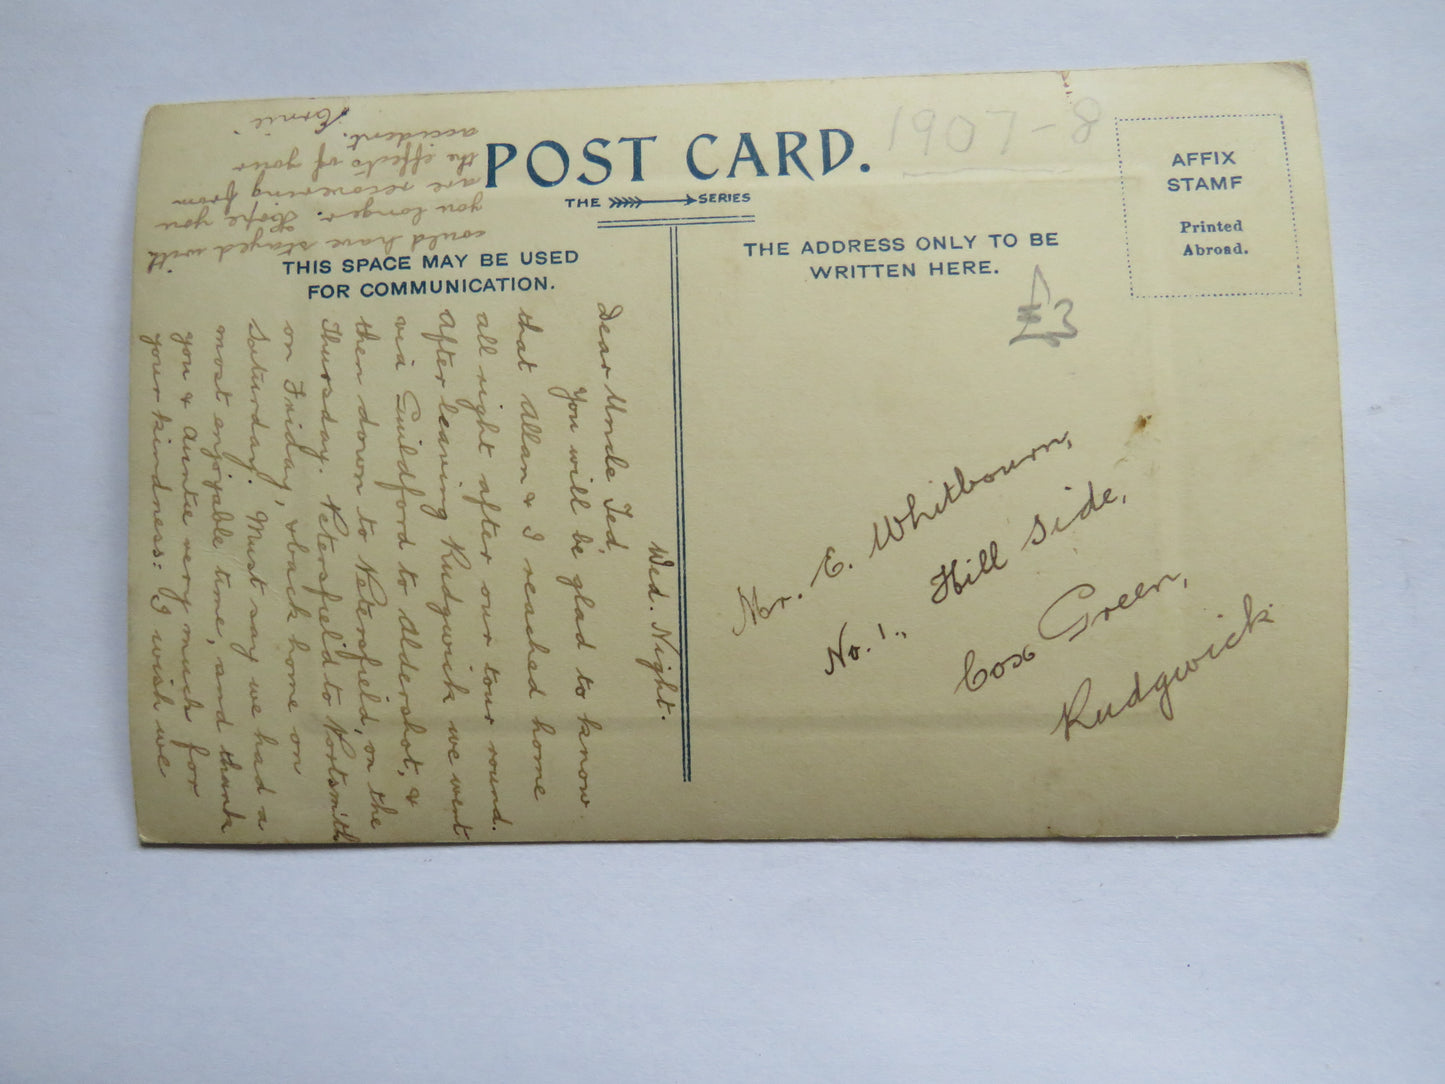 POST CARD.
THE SERIES
1907-8
AFFIX
STAMP
Printed
Abroad.
THIS SPACE MAY BE USED
FOR COMMUNICATION.
THE ADDRESS ONLY TO BE
WRITTEN HERE.
£3
Wed. Night.
Dear Uncle Ted,
You will be glad to know
that Allan & I reached home
all right after our tour round.
After leaving Rudgwick we went
via Guildford to Aldershot, &
then down to Petersfield, on the
Thursday. Petersfield to Portsmith
on Friday, & back home on
Saturday. Must say we had a
most enjoyable time, and thank
you & Auntie very much for
your kindness: I wish we
could have stayed with
you longer. Hope you
are recovering from
the effects of your
accident.
Ernie
Mr. E. Whitbourn,
No. 1., Hill Side,
Cox Green,
Rudgwick